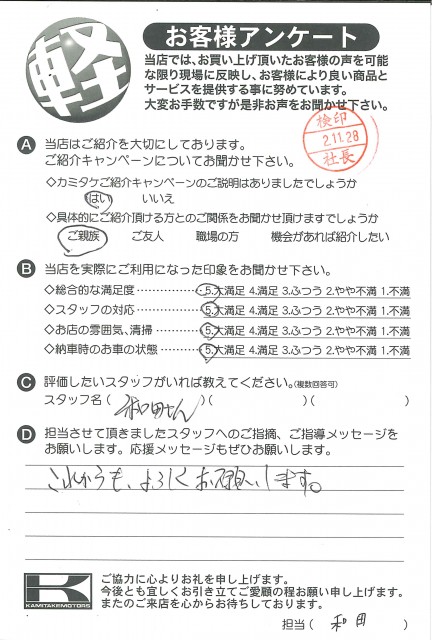 軽
お客様アンケート
当店では、お買い上げ頂いたお客様の声を可能
な限り現場に反映し、お客様により良い商品と
サービスを提供する事に努めています。
大変お手数ですが是非お声をお聞かせ下さい。
検印
2.11.28
社長
A 当店はご紹介を大切にしております。
ご紹介キャンペーンについてお聞かせ下さい。
◇カミタケご紹介キャンペーンのご説明はありましたでしょうか
はい いいえ
◇具体的にご紹介頂ける方とのご関係をお聞かせ頂けますでしょうか
ご親族 ご友人 職場の方 機会があれば紹介したい
B 当店を実際にご利用になった印象をお聞かせ下さい。
◇総合的な満足度……………5.大満足 4.満足 3.ふつう 2.やや不満 1.不満
◇スタッフの対応……………5.大満足 4.満足 3.ふつう 2.やや不満 1.不満
◇お店の雰囲気、清掃………5.大満足 4.満足 3.ふつう 2.やや不満 1.不満
◇納車時のお車の状態………5.大満足 4.満足 3.ふつう 2.やや不満 1.不満
C 評価したいスタッフがいれば教えてください。(複数回答可)
スタッフ名( 和田さん )( )( )
D 担当させて頂きましたスタッフへのご指摘、ご指導メッセージを
お願いします。応援メッセージもぜひお願いします。
これからも、よろしくお願いします。
K
KAMITAKEMOTORS
ご協力に心よりお礼を申し上げます。
今後とも宜しくお引き立てご愛顧の程お願い申し上げます。
またのご来店を心からお待ちしております。
担当( 和田 )